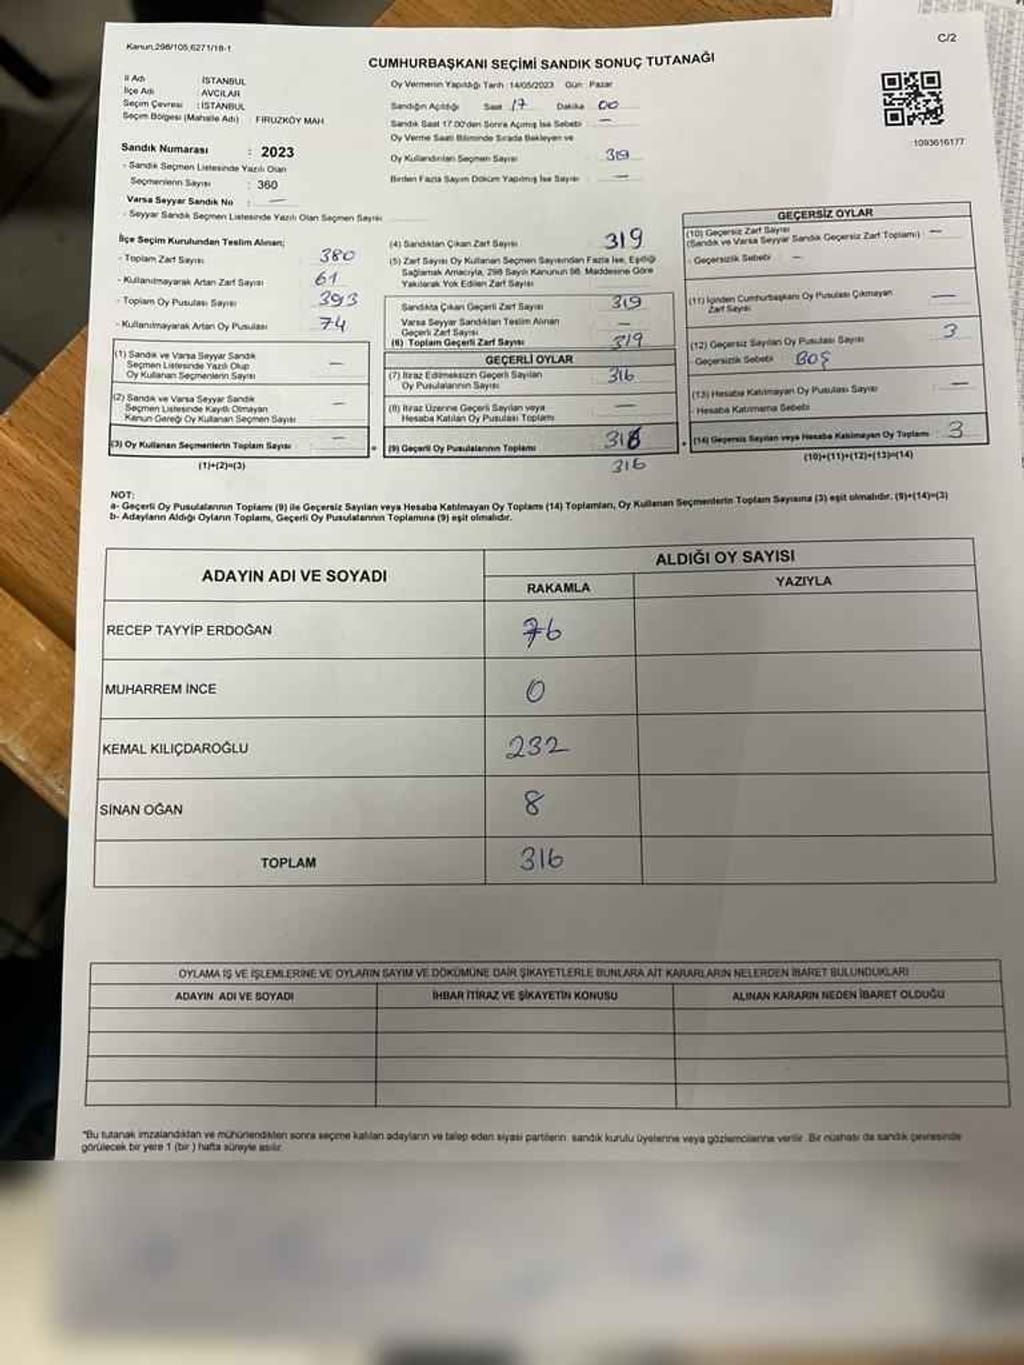 Kanun,298/105,6271/18-1
C/2
CUMHURBAŞKANI SEÇİMİ SANDIK SONUÇ TUTANAĞI
İl Adı : İSTANBUL
İlçe Adı : AVCILAR
Seçim Çevresi : İSTANBUL
Seçim Bölgesi (Mahalle Adı) : FIRUZKÖY MAH.
Sandık Numarası : 2023
- Sandık Seçmen Listesinde Yazılı Olan
Seçmenlerin Sayısı : 360
Varsa Seyyar Sandık No : —
- Seyyar Sandık Seçmen Listesinde Yazılı Olan Seçmen Sayısı
Oy Vermenin Yapıldığı Tarih :14/05/2023 Gün : Pazar
Sandığın Açıldığı Saat 17 Dakika 00
Sandık Saat 17.00'den Sonra Açılmış İse Sebebi : —
Oy Verme Saati Bitiminde Sırada Bekleyen ve
Oy Kullandırılan Seçmen Sayısı 319
Birden Fazla Sayım Döküm Yapılmış İse Sayısı —
1093616177
İlçe Seçim Kurulundan Teslim Alınan;
- Toplam Zarf Sayısı : 380
- Kullanılmayarak Artan Zarf Sayısı : 61
- Toplam Oy Pusulası Sayısı : 393
- Kullanılmayarak Artan Oy Pusulası : 74
(1) Sandık ve Varsa Seyyar Sandık
Seçmen Listesinde Yazılı Olup
Oy Kullanan Seçmenlerin Sayısı —
(2) Sandık ve Varsa Seyyar Sandık
Seçmen Listesinde Kayıtlı Olmayan
Kanun Gereği Oy Kullanan Seçmen Sayısı —
(3) Oy Kullanan Seçmenlerin Toplam Sayısı —
(1)+(2)=(3)
(4) Sandıktan Çıkan Zarf Sayısı 319
(5) Zarf Sayısı Oy Kullanan Seçmen Sayısından Fazla İse, Eşitliği
Sağlamak Amacıyla, 298 Sayılı Kanunun 98. Maddesine Göre
Yakılarak Yok Edilen Zarf Sayısı
Sandıkta Çıkan Geçerli Zarf Sayısı 319
Varsa Seyyar Sandıktan Teslim Alınan
Geçerli Zarf Sayısı —
(6) Toplam Geçerli Zarf Sayısı 319
GEÇERLİ OYLAR
(7) İtiraz Edilmeksizin Geçerli Sayılan
Oy Pusulalarının Sayısı 316
(8) İtiraz Üzerine Geçerli Sayılan veya
Hesaba Katılan Oy Pusulası Toplamı —
(9) Geçerli Oy Pusulalarının Toplamı 316
316
GEÇERSİZ OYLAR
(10) Geçersiz Zarf Sayısı —
(Sandık ve Varsa Seyyar Sandık Geçersiz Zarf Toplamı)
- Geçersizlik Sebebi —
(11) İçinden Cumhurbaşkanı Oy Pusulası Çıkmayan
Zarf Sayısı —
(12) Geçersiz Sayılan Oy Pusulası Sayısı 3
- Geçersizlik Sebebi BOŞ
(13) Hesaba Katılmayan Oy Pusulası Sayısı —
- Hesaba Katılmama Sebebi
(14) Geçersiz Sayılan veya Hesaba Katılmayan Oy Toplamı 3
(10)+(11)+(12)+(13)=(14)
NOT:
a- Geçerli Oy Pusulalarının Toplamı (9) ile Geçersiz Sayılan veya Hesaba Katılmayan Oy Toplamı (14) Toplamları, Oy Kullanan Seçmenlerin Toplam Sayısına (3) eşit olmalıdır. (9)+(14)=(3)
b- Adayların Aldığı Oyların Toplamı, Geçerli Oy Pusulalarının Toplamına (9) eşit olmalıdır.
ADAYIN ADI VE SOYADI
ALDIĞI OY SAYISI
RAKAMLA YAZIYLA
RECEP TAYYİP ERDOĞAN 76
MUHARREM İNCE 0
KEMAL KILIÇDAROĞLU 232
SİNAN OĞAN 8
TOPLAM 316
OYLAMA İŞ VE İŞLEMLERİNE VE OYLARIN SAYIM VE DÖKÜMÜNE DAİR ŞİKAYETLERLE BUNLARA AİT KARARLARIN NELERDEN İBARET BULUNDUKLARI
ADAYIN ADI VE SOYADI İHBAR İTİRAZ VE ŞİKAYETİN KONUSU ALINAN KARARIN NEDEN İBARET OLDUĞU
*Bu tutanak imzalandıktan ve mühürlendikten sonra seçime katılan adayların ve talep eden siyasi partilerin sandık kurulu üyelerine veya gözlemcilerine verilir. Bir nüshası da sandık çevresinde
görülecek bir yere 1 (bir ) hafta süreyle asılır.